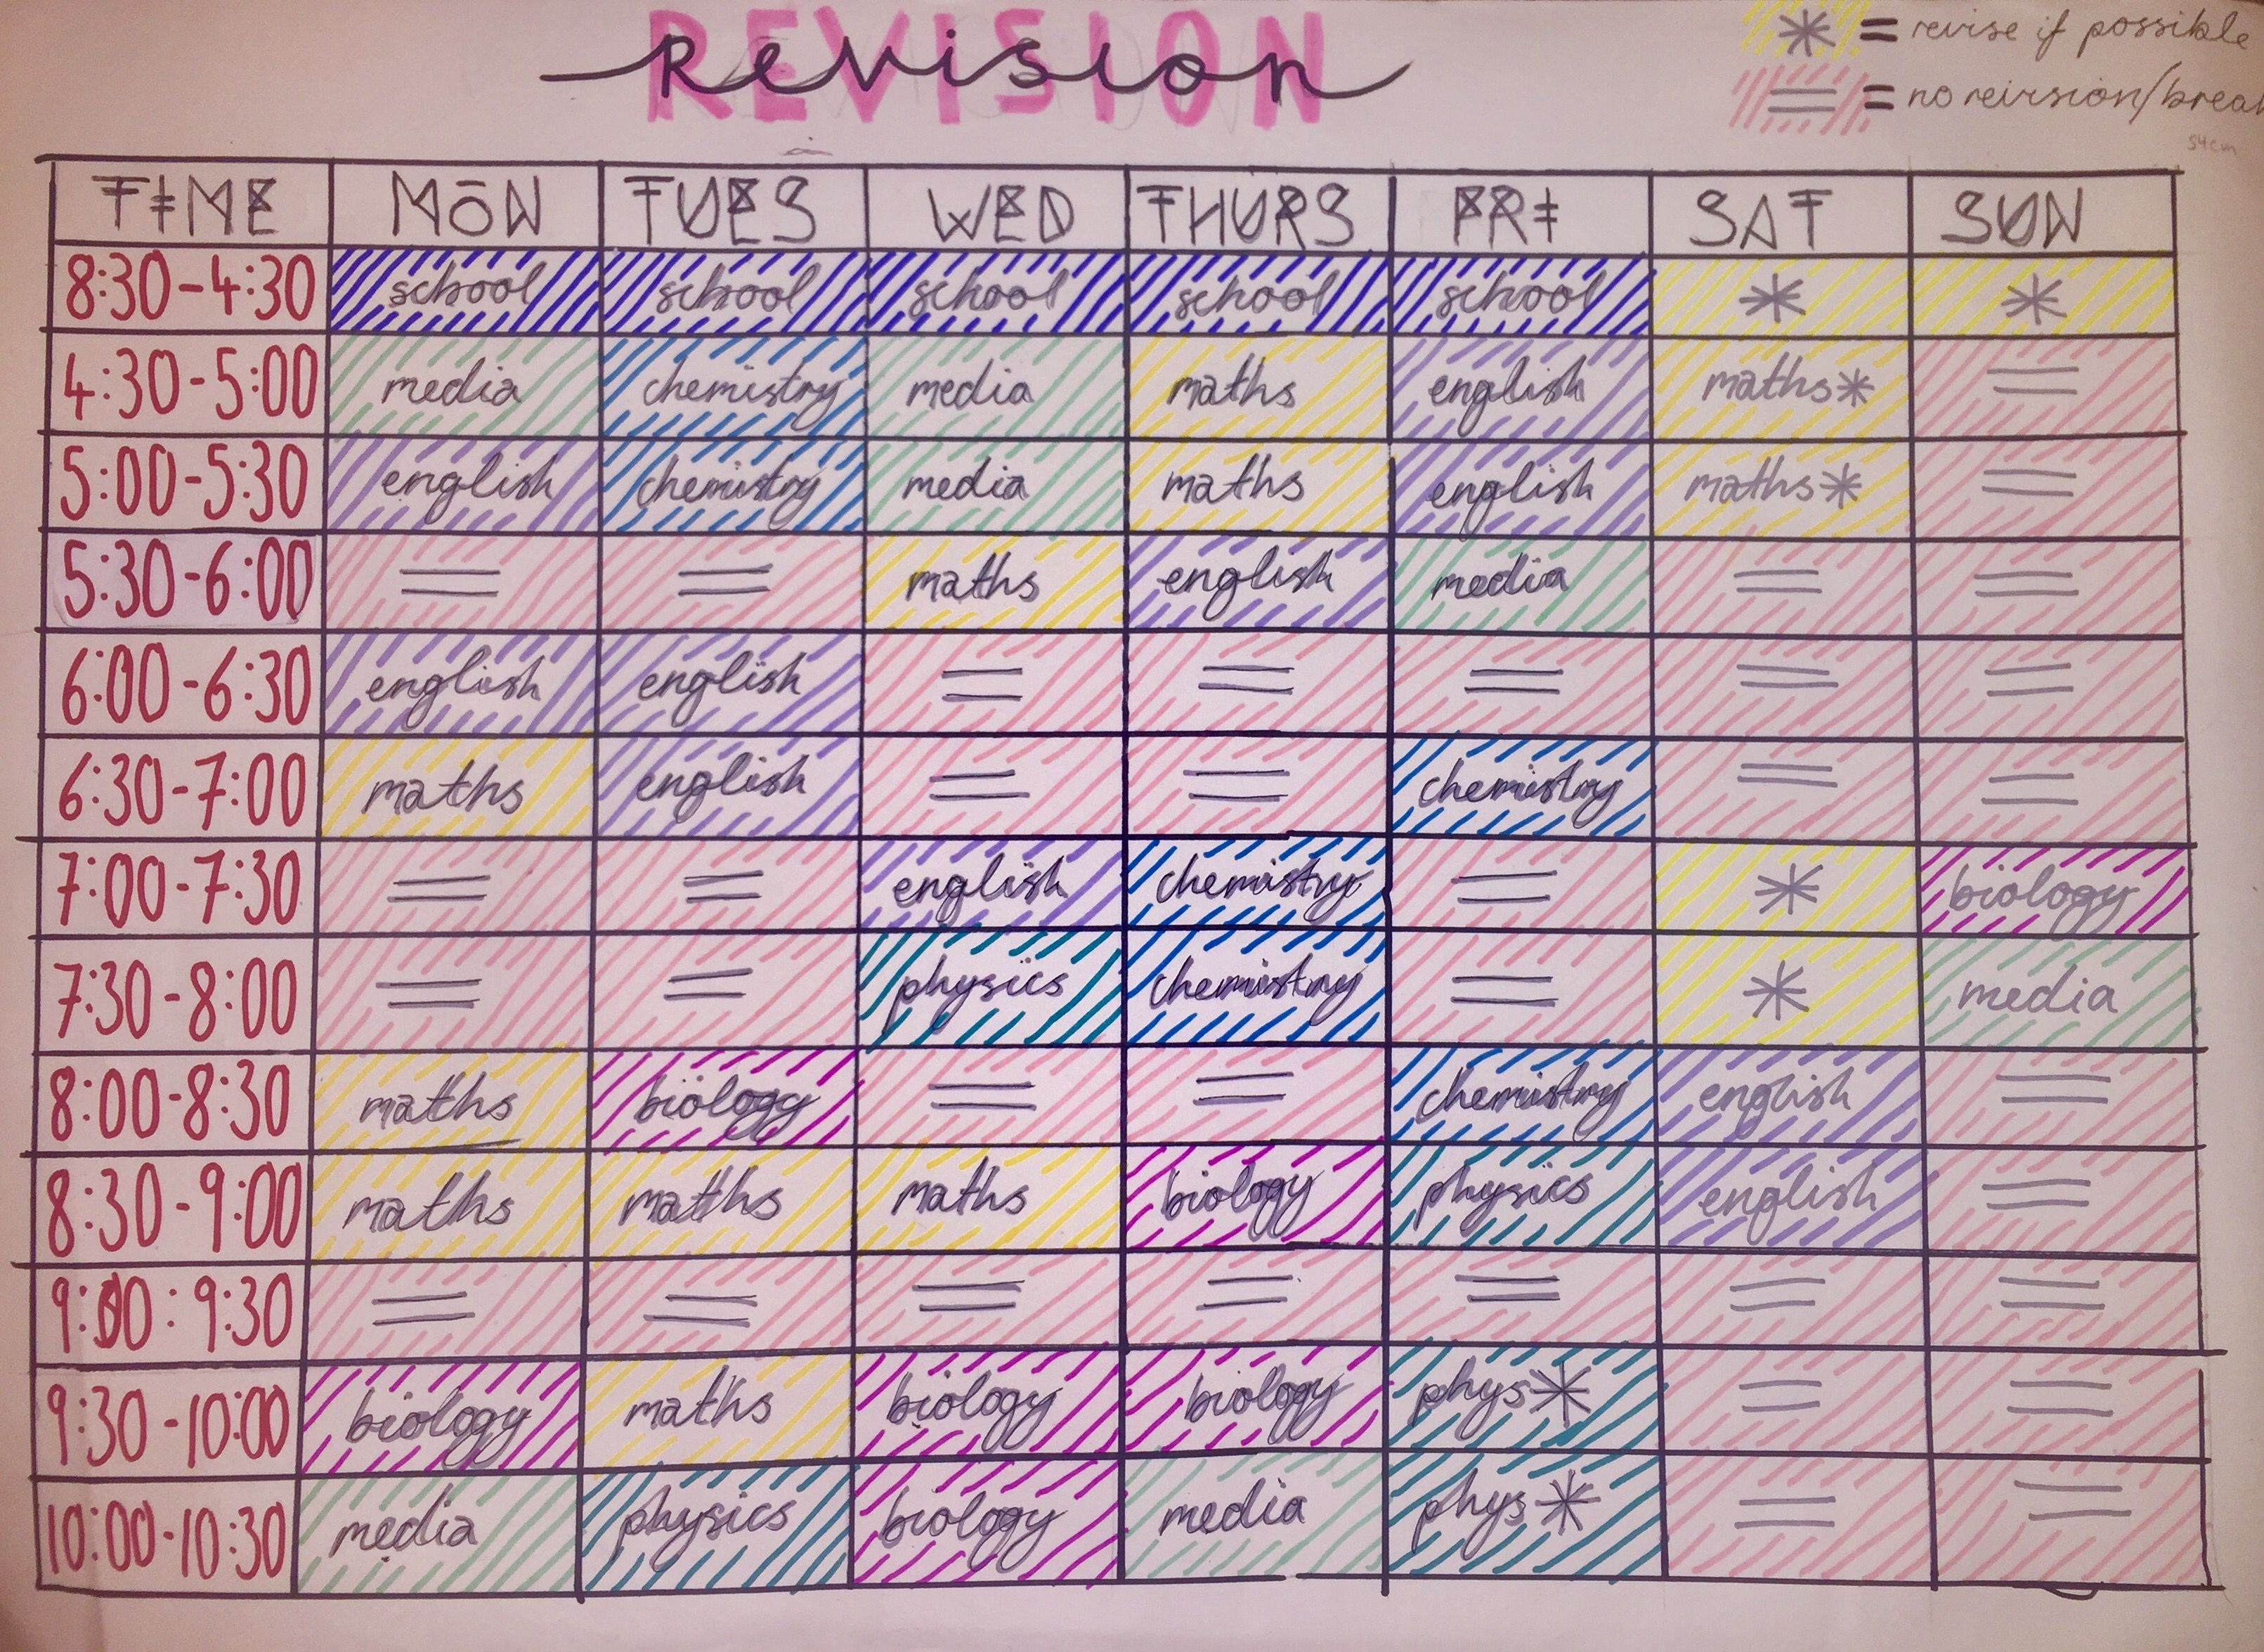 REVISION
Revision
* = revise if possible
= = no reirsion/break
54cm
TIME MON TUES WED THURS FRI SAT SUN
8:30-4:30 school school school school school * *
4:30-5:00 media chemistry media maths english maths* =
5:00-5:30 english chemistry media maths english maths* =
5:30-6:00 = = maths english media = =
6:00-6:30 english english = = = = =
6:30-7:00 maths english = = chemistry = =
7:00-7:30 = = english chemistry = * biology
7:30-8:00 = = physics chemistry = * media
8:00-8:30 maths biology = = chemistry english =
8:30-9:00 maths maths maths biology physics english =
9:00:9:30 = = = = = = =
9:30-10:00 biology maths biology biology phys* = =
10:00-10:30 media physics biology media phys* = =